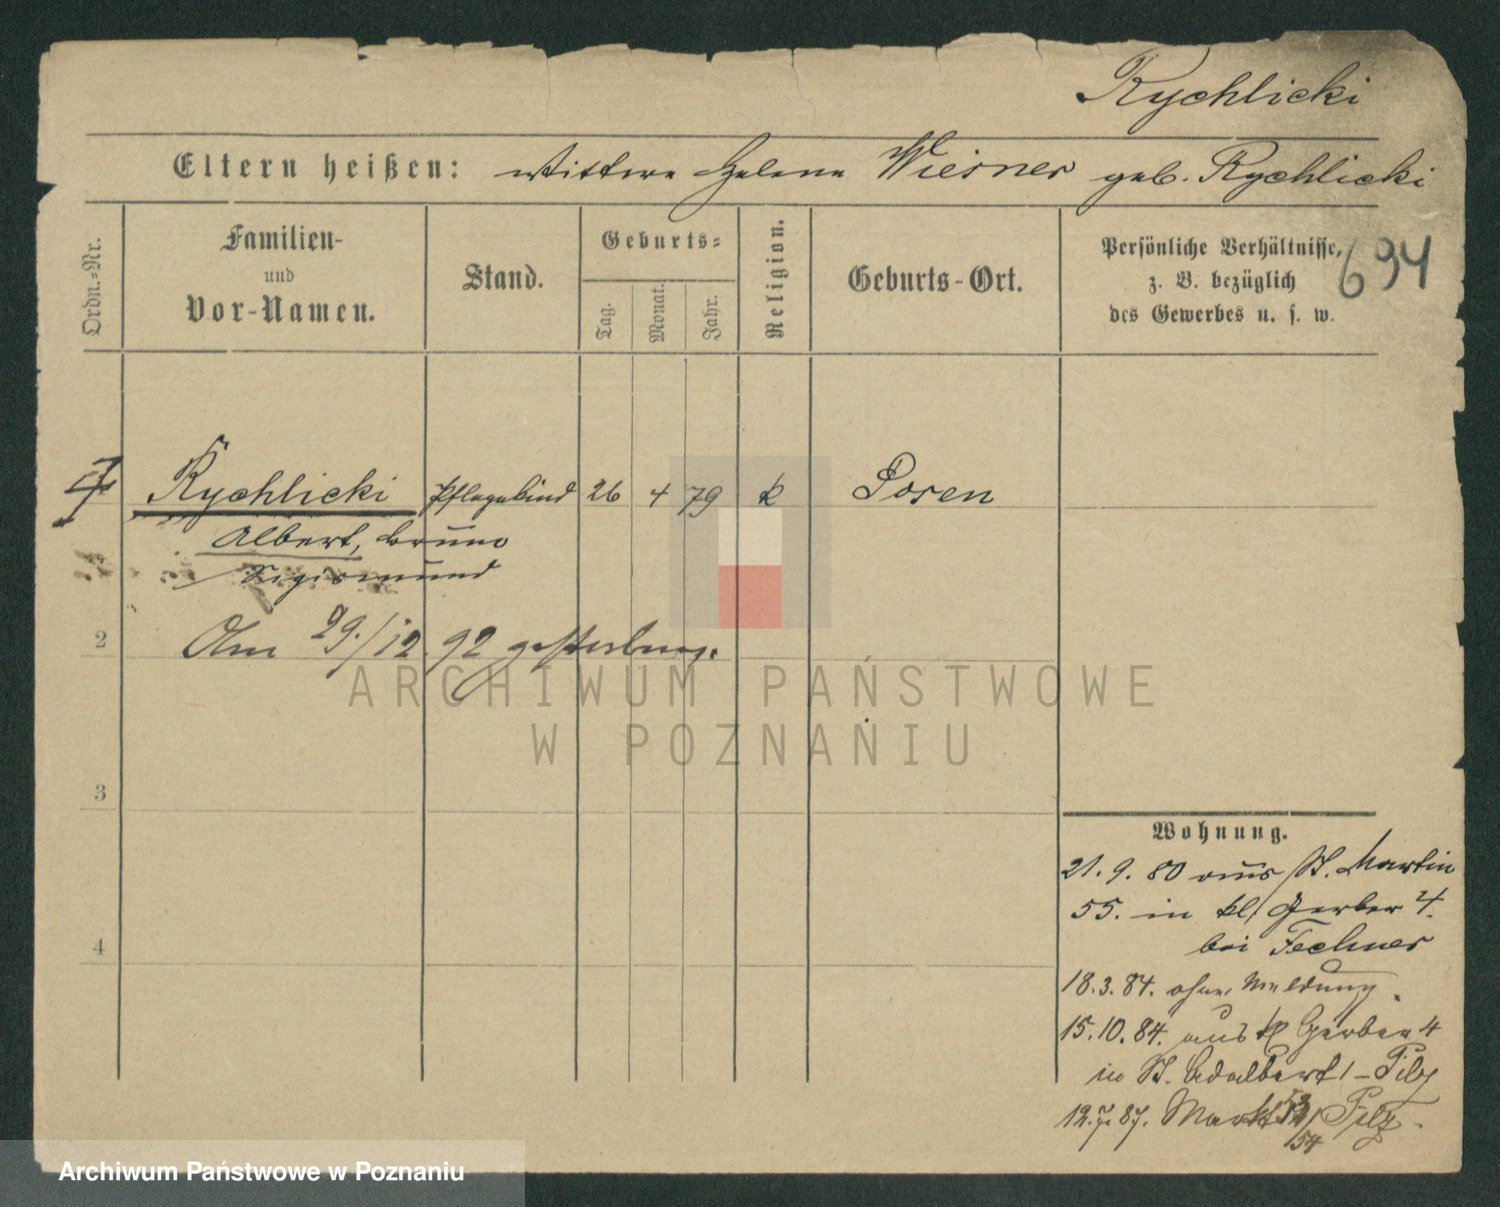 Rychlicki
Eltern heißen: Wittwe Helene Wiesner geb. Rychlicki
694
Ordn.-Nr.
Familien-
und
Vor-Namen.
Stand.
Geburts-
Tag.
Monat.
Jahr.
Religion.
Geburts-Ort.
Persönliche Verhältnisse,
z. B. bezüglich
des Gewerbes u. s. w.
Rychlicki Pflegekind 26 4 79 k Posen
Albert, Bruno
Sigismund
2
Am 29./12. 92 gestorben.
3
4
Wohnung.
21. 9. 80 aus St. Martin
55. in kl. Gerber 4.
bei Fechner
18. 3. 84. ohne Meldung.
15. 10. 84. aus kl Gerber 4
in St. Adalbert 1 - Pilz
12. 7. 87. Markt 53/54 Pilz.
ARCHIWUM PAŃSTWOWE
W POZNANIU
Archiwum Państwowe w Poznaniu